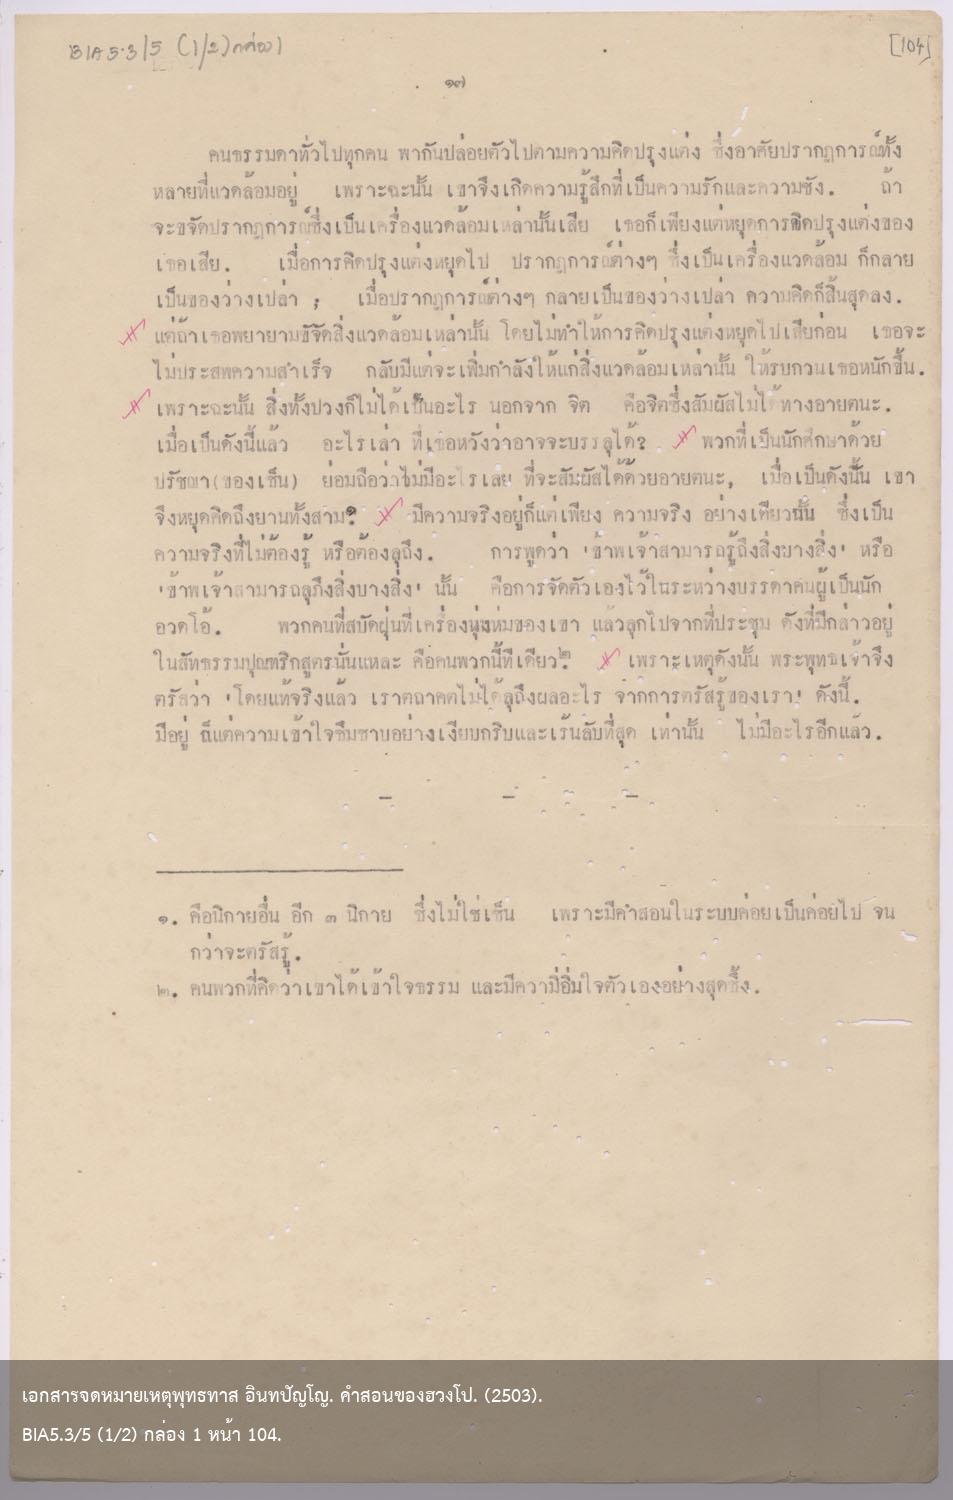 BIA 5.3/5 (1/2) กล่อง 1
[104]
๑๗
คนธรรมดาทั่วไปทุกคน พากันปล่อยตัวไปตามความคิดปรุงแต่ง ซึ่งอาศัยปรากฏการณ์ทั้ง
หลายที่แวดล้อมอยู่ เพราะฉะนั้น เขาจึงเกิดความรู้สึกที่เป็นความรักและความชัง. ถ้า
จะขจัดปรากฏการณ์ซึ่งเป็นเครื่องแวดล้อมเหล่านั้นเสีย เธอก็เพียงแต่หยุดการคิดปรุงแต่งของ
เธอเสีย. เมื่อการคิดปรุงแต่งหยุดไป ปรากฏการณ์ต่างๆ ซึ่งเป็นเครื่องแวดล้อม ก็กลาย
เป็นของว่างเปล่า ; เมื่อปรากฏการณ์ต่างๆ กลายเป็นของว่างเปล่า ความคิดก็สิ้นสุดลง.
แต่ถ้าเธอพยายามขจัดสิ่งแวดล้อมเหล่านั้น โดยไม่ทำให้การคิดปรุงแต่งหยุดไปเสียก่อน เธอจะ
ไม่ประสพความสำเร็จ กลับมีแต่จะเพิ่มกำลังให้แก่สิ่งแวดล้อมเหล่านั้น ให้รบกวนเธอหนักขึ้น.
เพราะฉะนั้น สิ่งทั้งปวงก็ไม่ได้เป็นอะไร นอกจาก จิต คือจิตซึ่งสัมผัสไม่ได้ทางอายตนะ.
เมื่อเป็นดังนี้แล้ว อะไรเล่า ที่เธอหวังว่าอาจจะบรรลุได้? พวกที่เป็นนักศึกษาด้วย
ปรัชญา(ของเซ็น) ย่อมถือว่าไม่มีอะไรเลย ที่จะสัมผัสได้ด้วยอายตนะ, เมื่อเป็นดังนั้น เขา
จึงหยุดคิดถึงยานทั้งสาม๑ มีความจริงอยู่ก็แต่เพียง ความจริง อย่างเดียวนั้น ซึ่งเป็น
ความจริงที่ไม่ต้องรู้ หรือต้องลุถึง. การพูดว่า 'ข้าพเจ้าสามารถรู้ถึงสิ่งบางสิ่ง' หรือ
'ข้าพเจ้าสามารถลุถึงสิ่งบางสิ่ง' นั้น คือการจัดตัวเองไว้ในระหว่างบรรดาคนผู้เป็นนัก
อวดโอ้. พวกคนที่สบัดฝุ่นที่เครื่องนุ่งห่มของเขา แล้วลุกไปจากที่ประชุม ดังที่มีกล่าวอยู่
ในสัทธรรมปุณฑริกสูตรนั่นแหละ คือคนพวกนี้ทีเดียว๒. เพราะเหตุดังนั้น พระพุทธเจ้าจึง
ตรัสว่า 'โดยแท้จริงแล้ว เราตถาคตไม่ได้ลุถึงผลอะไร จากการตรัสรู้ของเรา' ดังนี้.
มีอยู่ ก็แต่ความเข้าใจซึมซาบอย่างเงียบกริบและเร้นลับที่สุด เท่านั้น ไม่มีอะไรอีกแล้ว.
- - -
๑. คือนิกายอื่น อีก ๓ นิกาย ซึ่งไม่ใช่เซ็น เพราะมีคำสอนในระบบค่อยเป็นค่อยไป จน
กว่าจะตรัสรู้.
๒. คนพวกที่คิดว่าเขาได้เข้าใจธรรม และมีความอิ่มใจตัวเองอย่างสุดซึ้ง.
เอกสารจดหมายเหตุพุทธทาส อินทปัญโญ. คำสอนของฮวงโป. (2503).
BIA5.3/5 (1/2) กล่อง 1 หน้า 104.